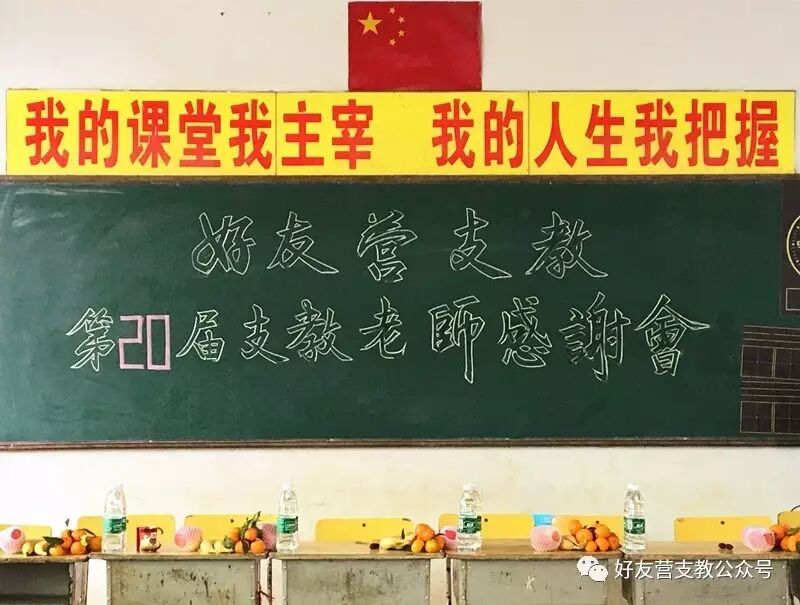 我的课堂我主宰 我的人生我把握
好友营支教
第20届支教老師感謝會
好友营支教公众号